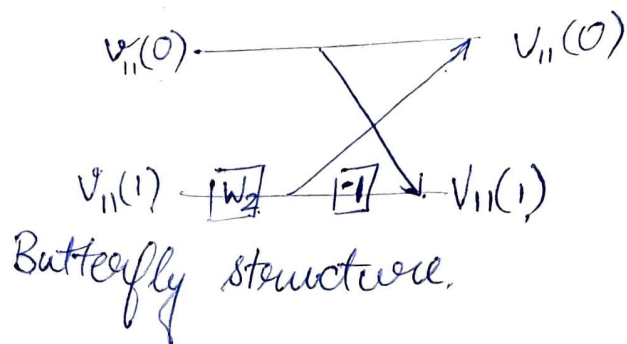 v₁₁(0) V₁₁(0)
v₁₁(1) W₂ -1 V₁₁(1)
Butterfly structure.